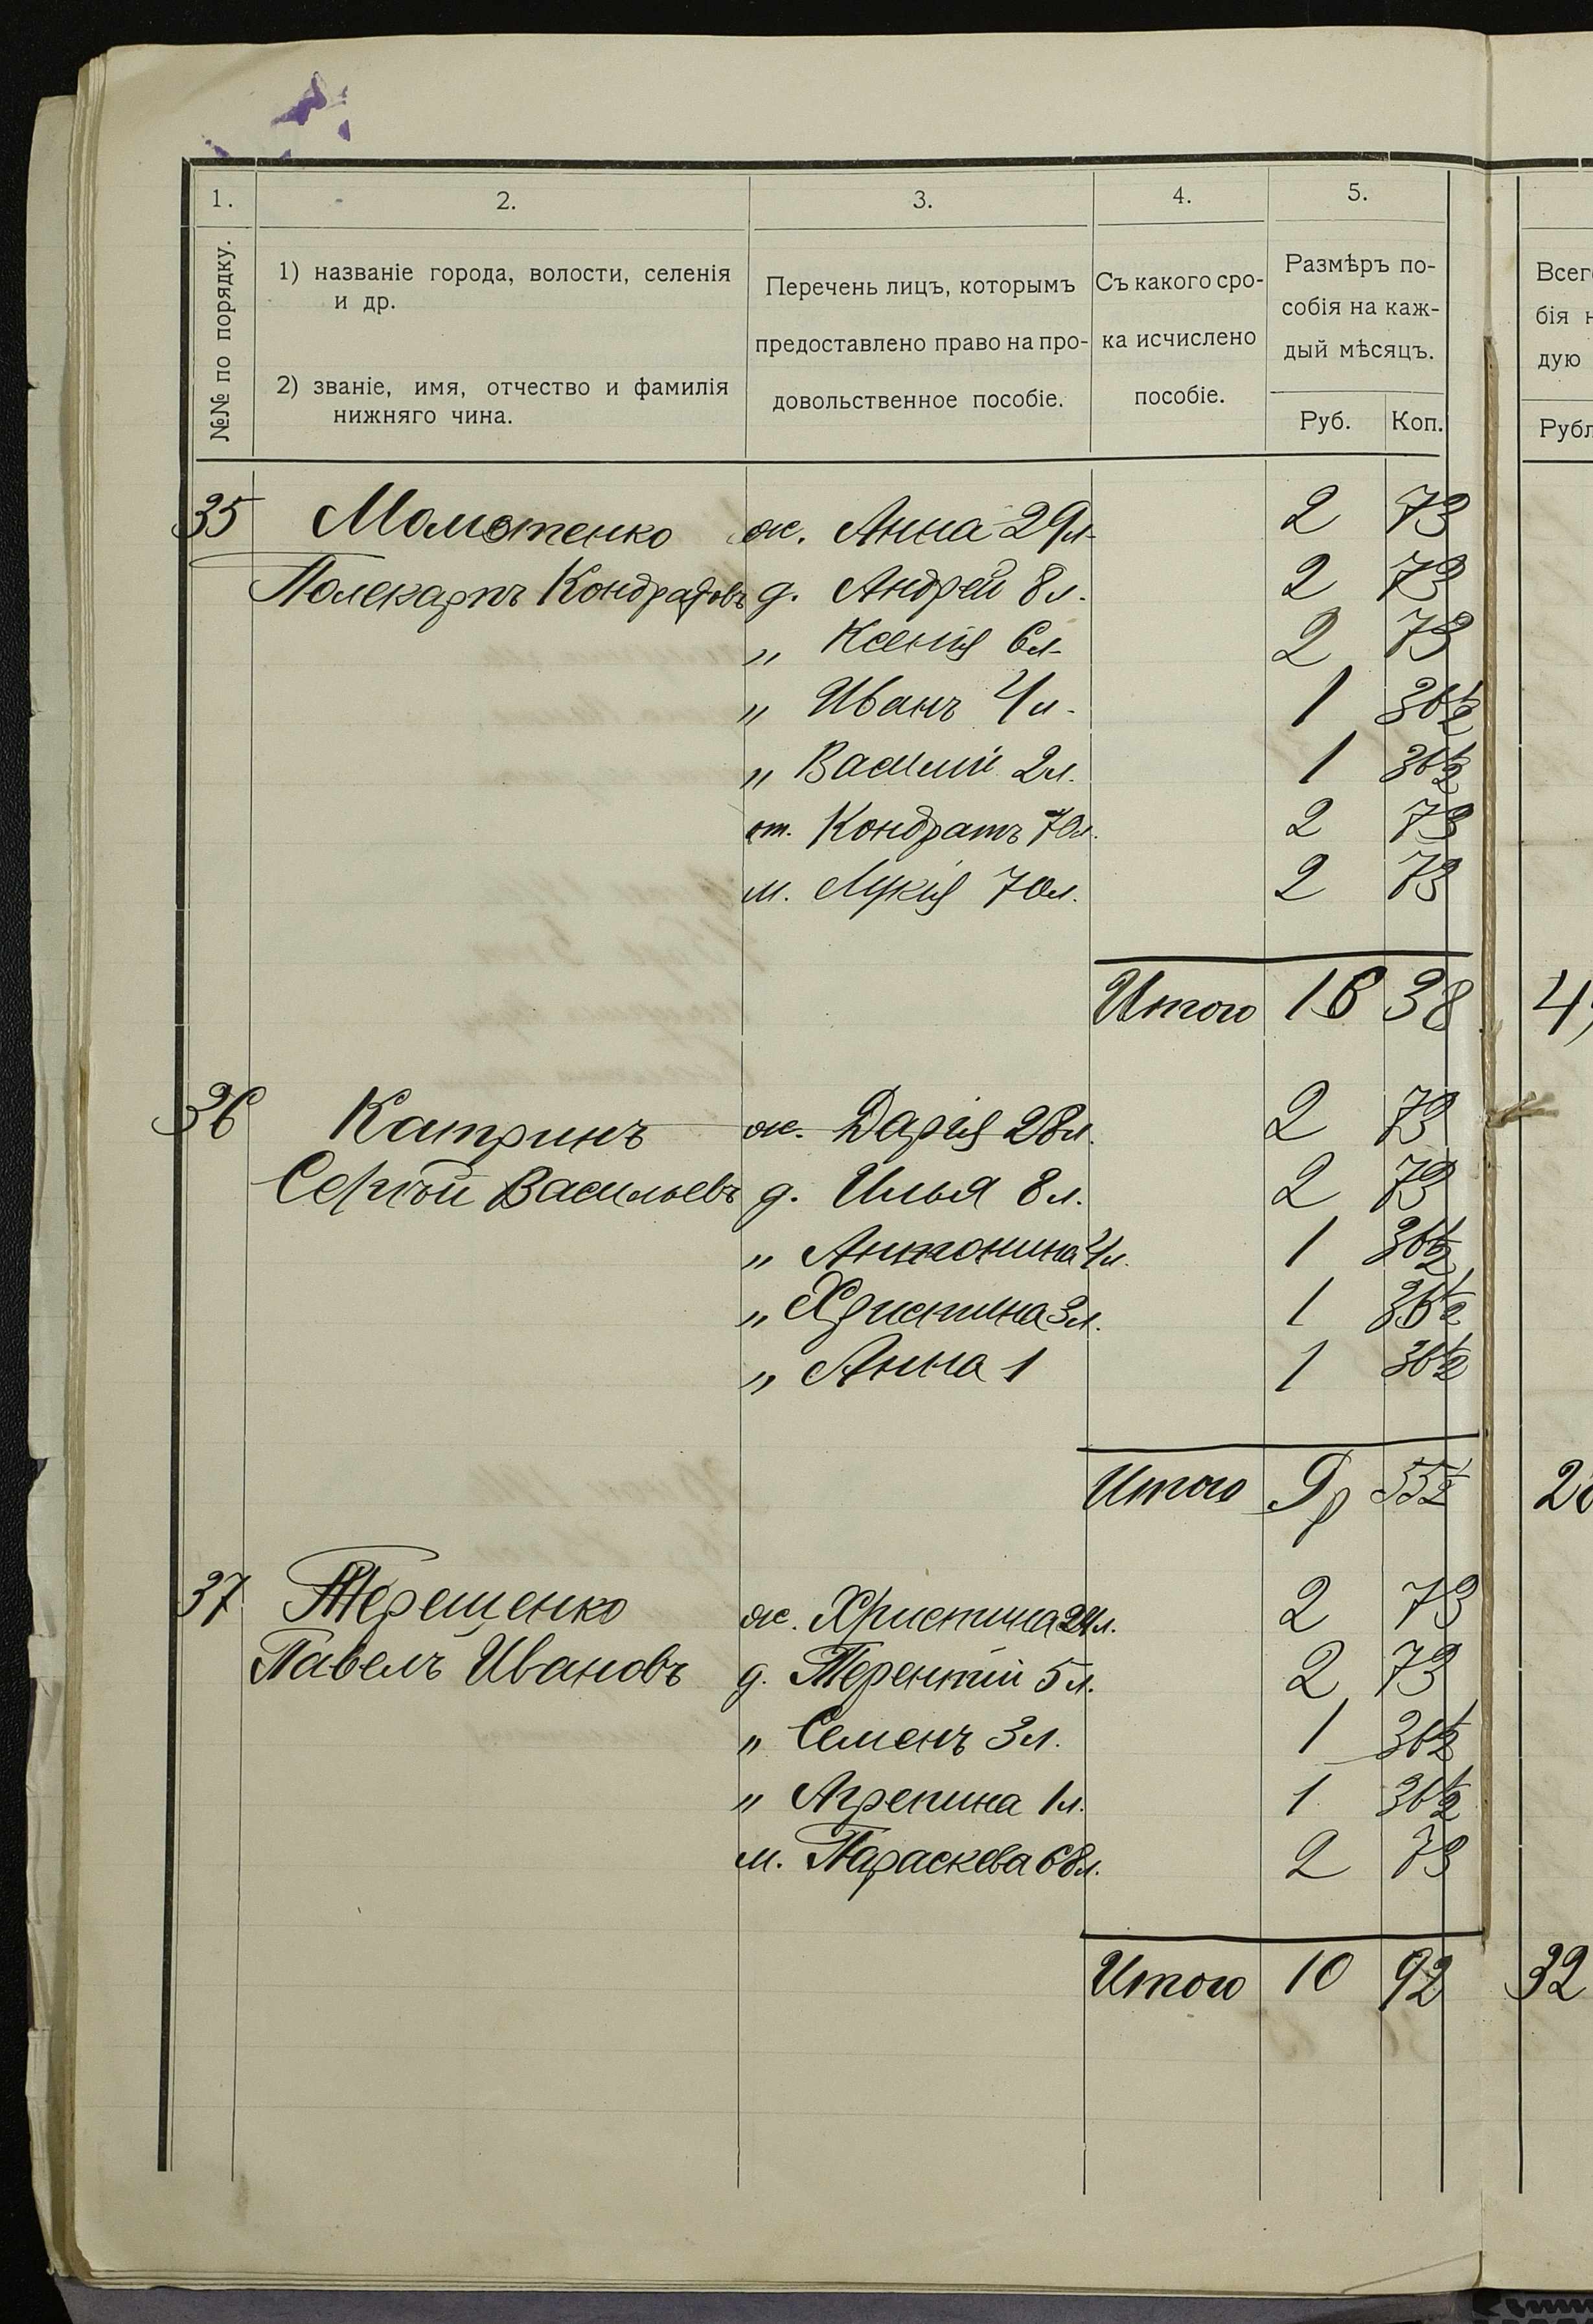 1. 2. 3. 4. 5.
№№ по порядку.
1) названіе города, волости, селенія
и др.
2) званіе, имя, отчество и фамилія
нижняго чина.
Перечень лицъ, которымъ
предоставлено право на про-
довольственное пособіе.
Съ какого сро-
ка исчислено
пособіе.
Размѣръ по-
собія на каж-
дый мѣсяцъ.
Руб. Коп.
Всего
бія н
дую
Рубл
35 Молотенко ж. Анна 29 л. 2 73
Полекарпъ Кондратовъ д. Андрей 8 л. 2 73
„ Ксенія 6 л. 2 73
„ Иванъ 4 л. 1 36½
„ Василій 2 л. 1 36½
от. Кондратъ 70 л. 2 73
м. Лукія 70 л. 2 73
Итого 16 38
36 Катринъ ж. Дарія 28 л. 2 73
Сергѣй Васильевъ д. Илья 8 л. 2 73
„ Антонина 4 л. 1 36½
„ Христина 3 л. 1 36½
„ Анна 1 1 36½
Итого 9 р 55½
37 Терещенко ж. Христина 24 л. 2 73
Павелъ Ивановъ д. Терентій 5 л. 2 73
„ Семенъ 3 л. 1 36½
„ Агрепина 1 л. 1 36½
м. Параскева 68 л. 2 73
Итого 10 92 32